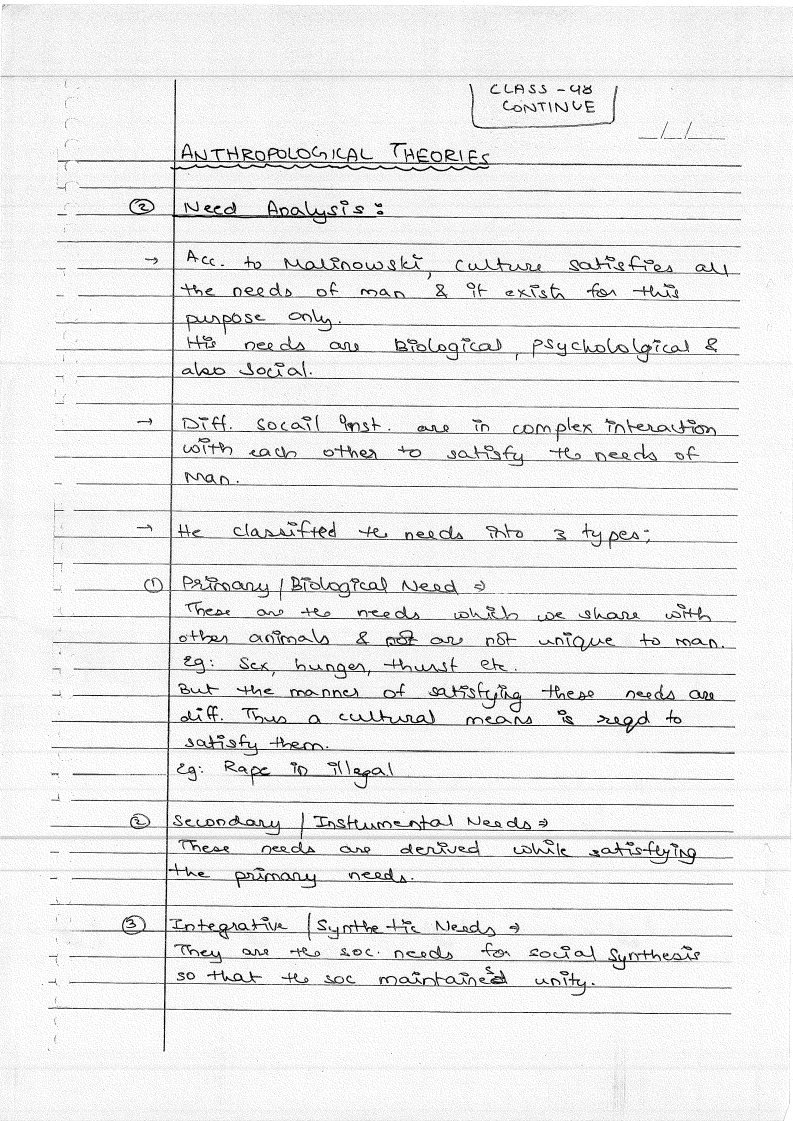 CLASS - 48
CONTINUE
__/__/__
ANTHROPOLOGICAL THEORIES
② Need Analysis:
→ Acc. to Malinowski, culture satisfies all
the needs of man & it exists for this
purpose only.
His needs are Biological, psychololgical &
also social.
→ Diff. socail inst. are in complex interaction
with each other to satisfy the needs of
Man.
→ He classified the needs into 3 types;
① Primary / Biological Need ⇒
These are the needs which we share with
other animals & not are not unique to man.
Eg: Sex, hunger, thurst etc.
But the manner of satisfying these needs are
diff. Thus a cultural means is reqd to
satisfy them.
Eg: Rape in illegal
② Secondary / Instrumental Needs ⇒
These needs are derived while satisfying
the primary needs.
③ Integrative / Synthetic Needs ⇒
They are the soc. needs for social synthesis
so that the soc maintains unity.